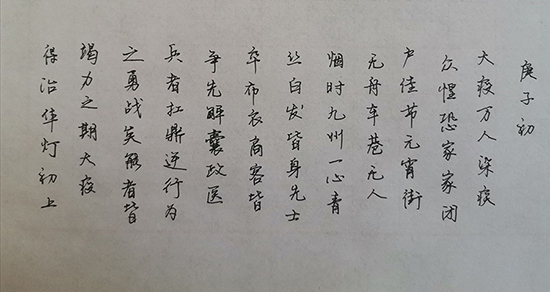 庚子初
大疫万人染疾
众惶恐家家闭
户佳节元宵街
无舟车巷无人
烟时九州一心青
丝白发皆身先士
卒布衣商客皆
争先解囊政医
兵者扛鼎逆行为
之勇战矣能者皆
竭力之期大疫
得治华灯初上